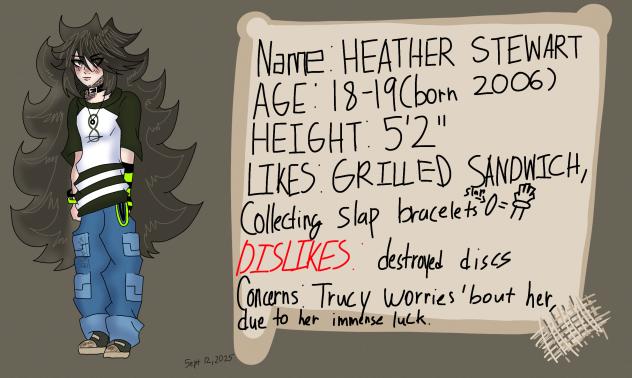 Name: HEATHER STEWART
AGE: 18-19(born 2006)
HEIGHT: 5'2"
LIKES: GRILLED SANDWICH,
Collecting slap bracelets
DISLIKES: destroyed discs
Concerns: Trucy worries 'bout her,
due to her immense luck.
Sept 12, 2025